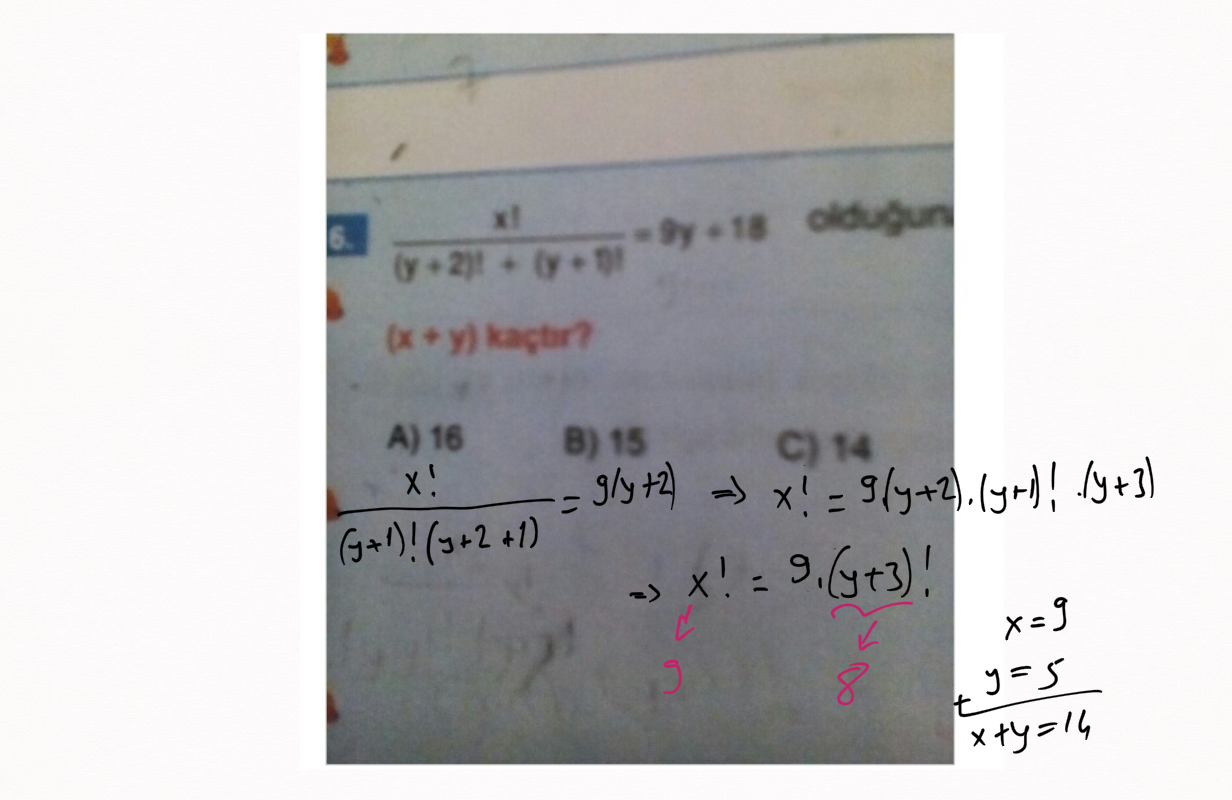 6.
x!
(y + 2)! + (y + 1)! = 9y + 18 olduğun
(x + y) kaçtır?
A) 16 B) 15 C) 14
x!
(y+1)!(y+2+1) = 9(y+2) => x! = 9(y+2).(y+1)! .(y+3)
=> x! = 9.(y+3)!
9 8
x = 9
y = 5
+
x+y = 14